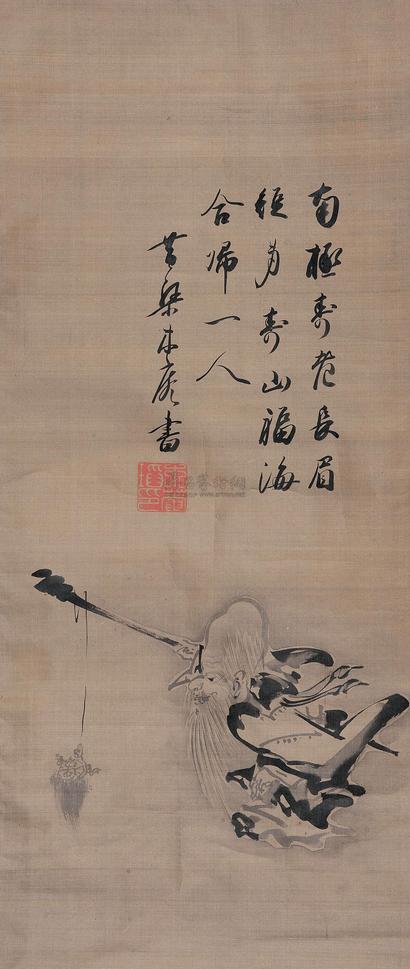 南極壽老長眉
短身壽山福海
合帰一人
黄檗木庵書